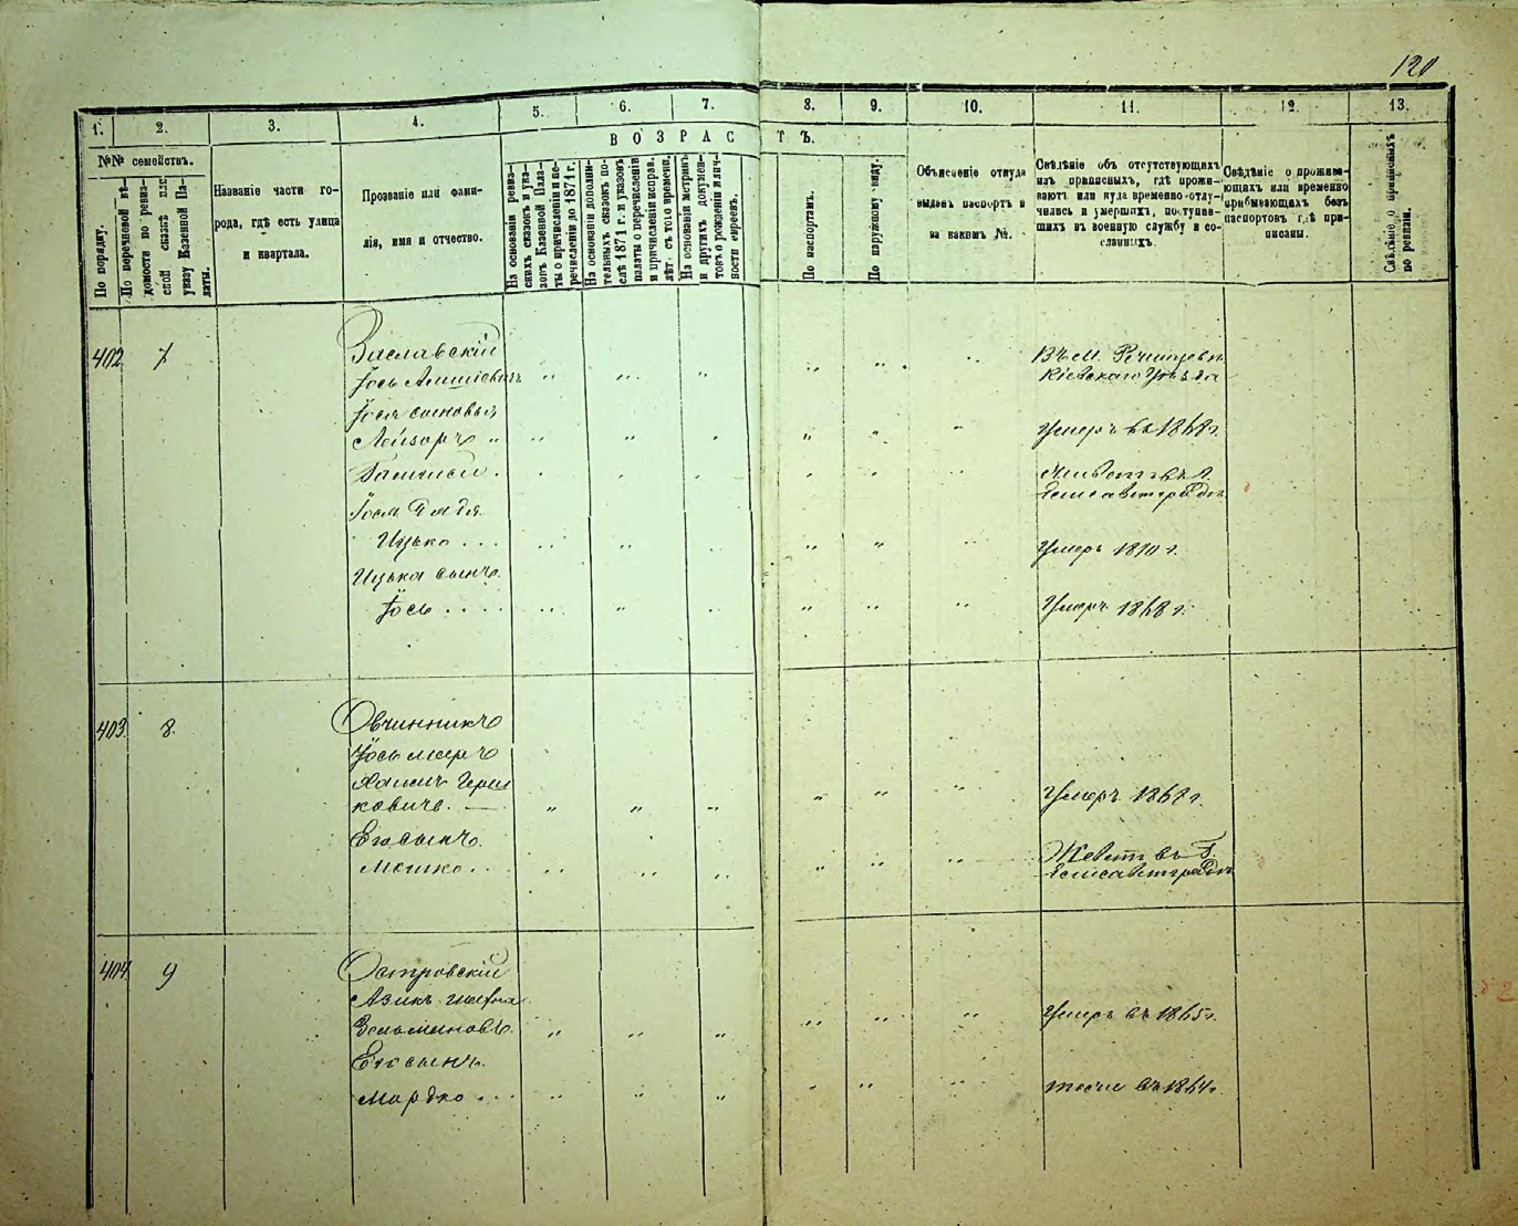 120
1.
2.
3.
4.
5.
6.
7.
8.
9.
10.
11.
12.
13.
ВОЗРАСТЪ.
№№ семействъ.
По порядку.
По перечневой вѣ-
домости по ревиз-
ской сказкѣ или
указу Казенной Па-
латы.
Названіе части го-
рода, гдѣ есть улица
и квартала.
Прозваніе или фами-
лія, имя и отчество.
На основаніи ревиз-
скихъ сказокъ и ука-
зовъ Казенной Пала-
ты о причисленіи и пе-
речисленіи до 1871 г.
На основаніи дополни-
тельныхъ сказокъ по-
слѣ 1871 г. и указовъ
палаты о перечисленіи
и причисленіи исправ.
лѣт. съ того времени.
На основаніи метрикъ
и другихъ докумен-
товъ о рожденіи и лич-
ности евреевъ.
По паспортамъ.
По наружному виду.
Объясненіе откуда
выданъ паспортъ и
за какимъ №.
Свѣдѣніе объ отсутствующихъ
изъ приписныхъ, гдѣ прожи-
ваютъ или куда временно-отлу-
чились и умершихъ, поступив-
шихъ въ военную службу и со-
сланныхъ.
Свѣдѣніе о прожива-
ющихъ или временно
прибывающихъ безъ
паспортовъ гдѣ при-
писаны.
Свѣдѣніе о приписныхъ
по ревизіи.
402 7 Заславскій Въ М.
Іось Кіевскаго Уѣзда
Іося сыновья
Лейзоръ " Умеръ въ 1868 г.
Живетъ въ Г.
Елисаветградѣ
Іося дядя
Ицько . . . Умеръ 1870 г.
Ицька сынъ
Іось . . . . Умеръ 1868 г.
403 8. Овчинникъ
Іось меръ
Хаимъ Герш
ковичъ. — Умеръ 1868 г.
Его сынъ.
Мошко . . . Живетъ въ Г.
Елисаветградѣ
404 9 Островскій
Азикъ
Зельмановъ. Умеръ въ 1865 г.
Его сынъ.
Мордко . . . тоже въ 1864 г.